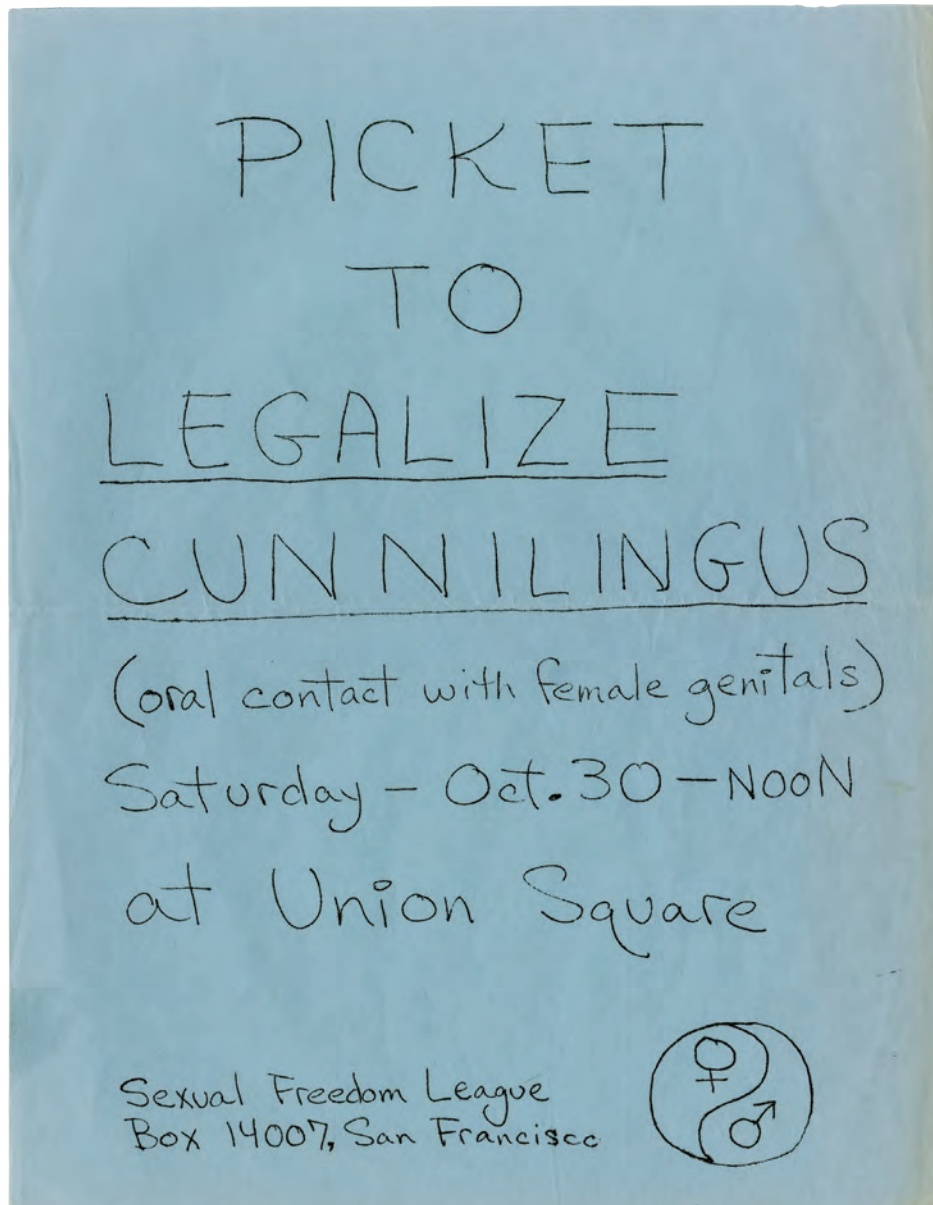 PICKET
TO
LEGALIZE
CUNNILINGUS
(oral contact with female genitals)
Saturday – Oct. 30 – NOON
at Union Square
Sexual Freedom League
Box 14007, San Francisco